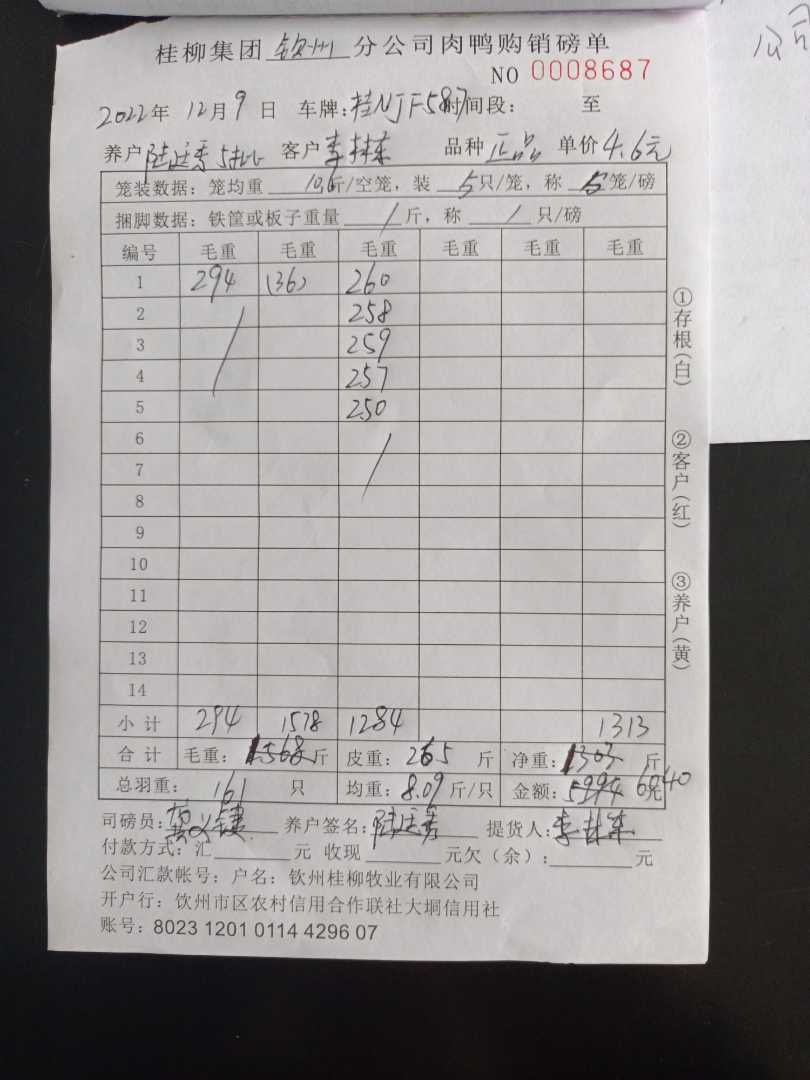 桂柳集团 钦州 分公司肉鸭购销磅单
NO 0008687
2022年 12月 9 日 车牌:桂NJF587时间段: 至
养户 陆廷秀 5批 客户 李林东 品种 正品 单价 4.6元
笼装数据: 笼均重 10.6斤/空笼, 装 5只/笼, 称 5笼/磅
捆脚数据: 铁筐或板子重量 / 斤, 称 / 只/磅
编号 毛重 毛重 毛重 毛重 毛重 毛重
1 294 (36) 260
2 258
3 259
4 257
5 250
6
7
8
9
10
11
12
13
14
小计 294 1578 1284 1313
合计 毛重: 1568斤 皮重: 265 斤 净重: 1303 斤
总羽重: 161 只 均重: 8.09斤/只 金额: 5994 6040元
司磅员: 养户签名: 陆廷秀 提货人: 李林东
付款方式: 汇 元 收现 元欠(余): 元
公司汇款帐号: 户名: 钦州桂柳牧业有限公司
开户行: 饮州市区农村信用合作联社大垌信用社
账号: 8023 1201 0114 4296 07
①存根(白)
②客户(红)
③养户(黄)
公司